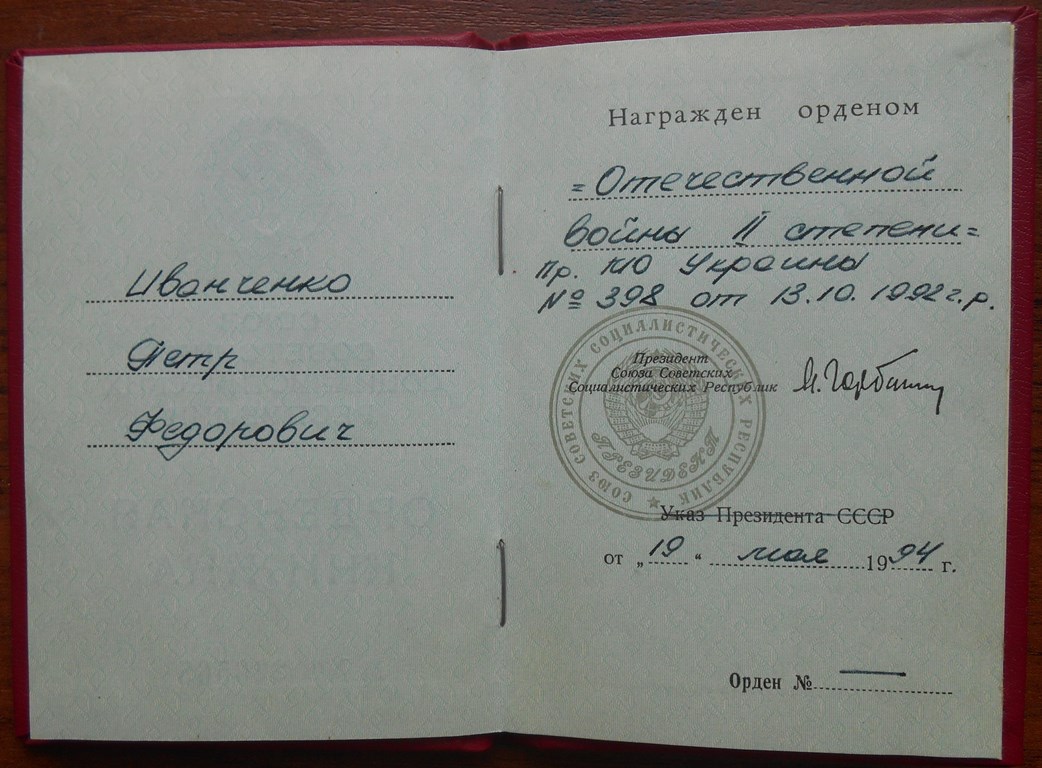 Иванченко
Петр
Федорович
Награжден орденом
=Отечественной
войны II степени=
Пр. МО Украины
№ 398 от 13.10.1992г.р.
Президент
Союза Советских
Социалистических Республик
М. Горбачев
СОЮЗ СОВЕТСКИХ СОЦИАЛИСТИЧЕСКИХ РЕСПУБЛИК
ПРЕЗИДЕНТ
Указ Президента СССР
от „19“ мая 1994 г.
Орден № —